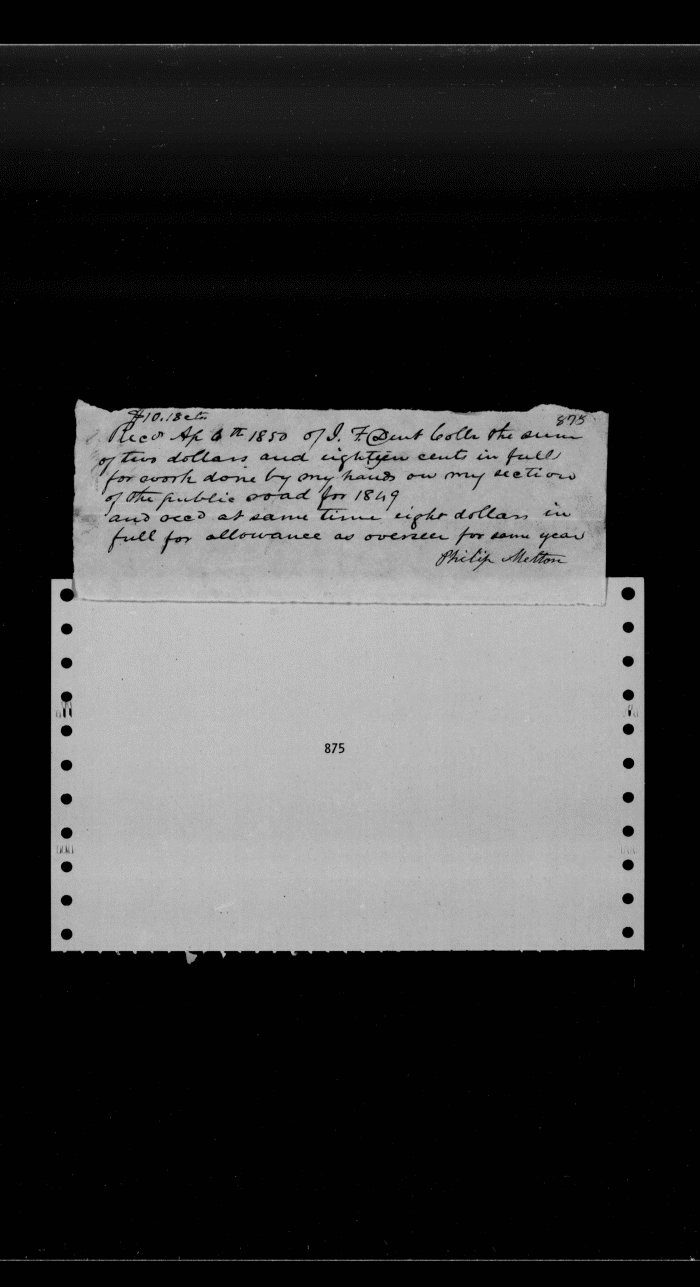 $10.18cts
875
Recd Ap 6th 1850 of J. F Dent Colle the sum
of two dollars and eighteen cents in full
for work done by my hands on my section
of the public road for 1849
and recd at same time eight dollars in
full for allowance as overseer for same year
Philip Melton
875